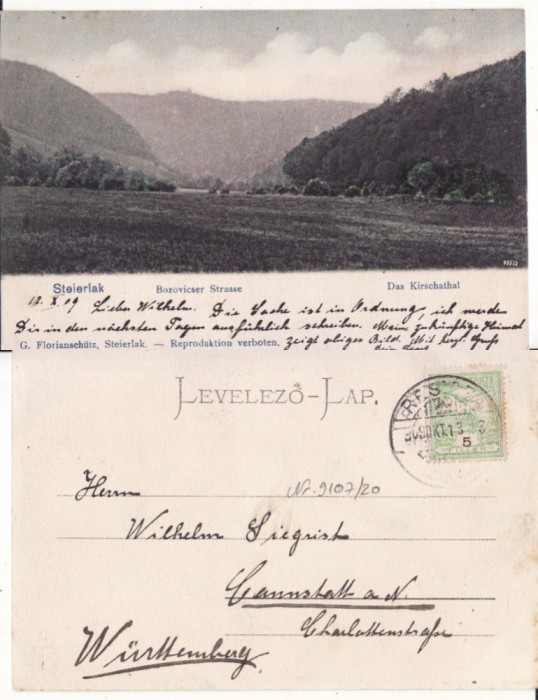 Steierlak Bozovicser Strasse Das Kirschathal
12. X. 09 Lieber Wilhelm. Die Sache ist in Ordnung, ich werde
Dir in den nächsten Tagen ausführlich schreiben. Meine zukünftige Heimat
G. Florianschütz, Steierlak. — Reproduktion verboten. zeigt obiges Bild. Mit herzl. Gruß
dein
LEVELEZŐ-LAP.
5
FILLÉR
Herrn
Nr. 9107/20
Wilhelm Siegrist
Cannstatt a. N.
Charlottenstraße
Württemberg.